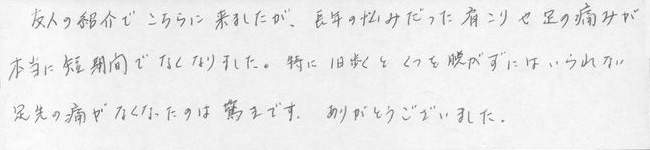 友人の紹介でこちらに来ましたが、長年の悩みだった肩こりや足の痛みが
本当に短期間でなくなりました。特に1日歩くとくつを脱がずにはいられない
足先の痛がなくなったのは驚きです。ありがとうございました。